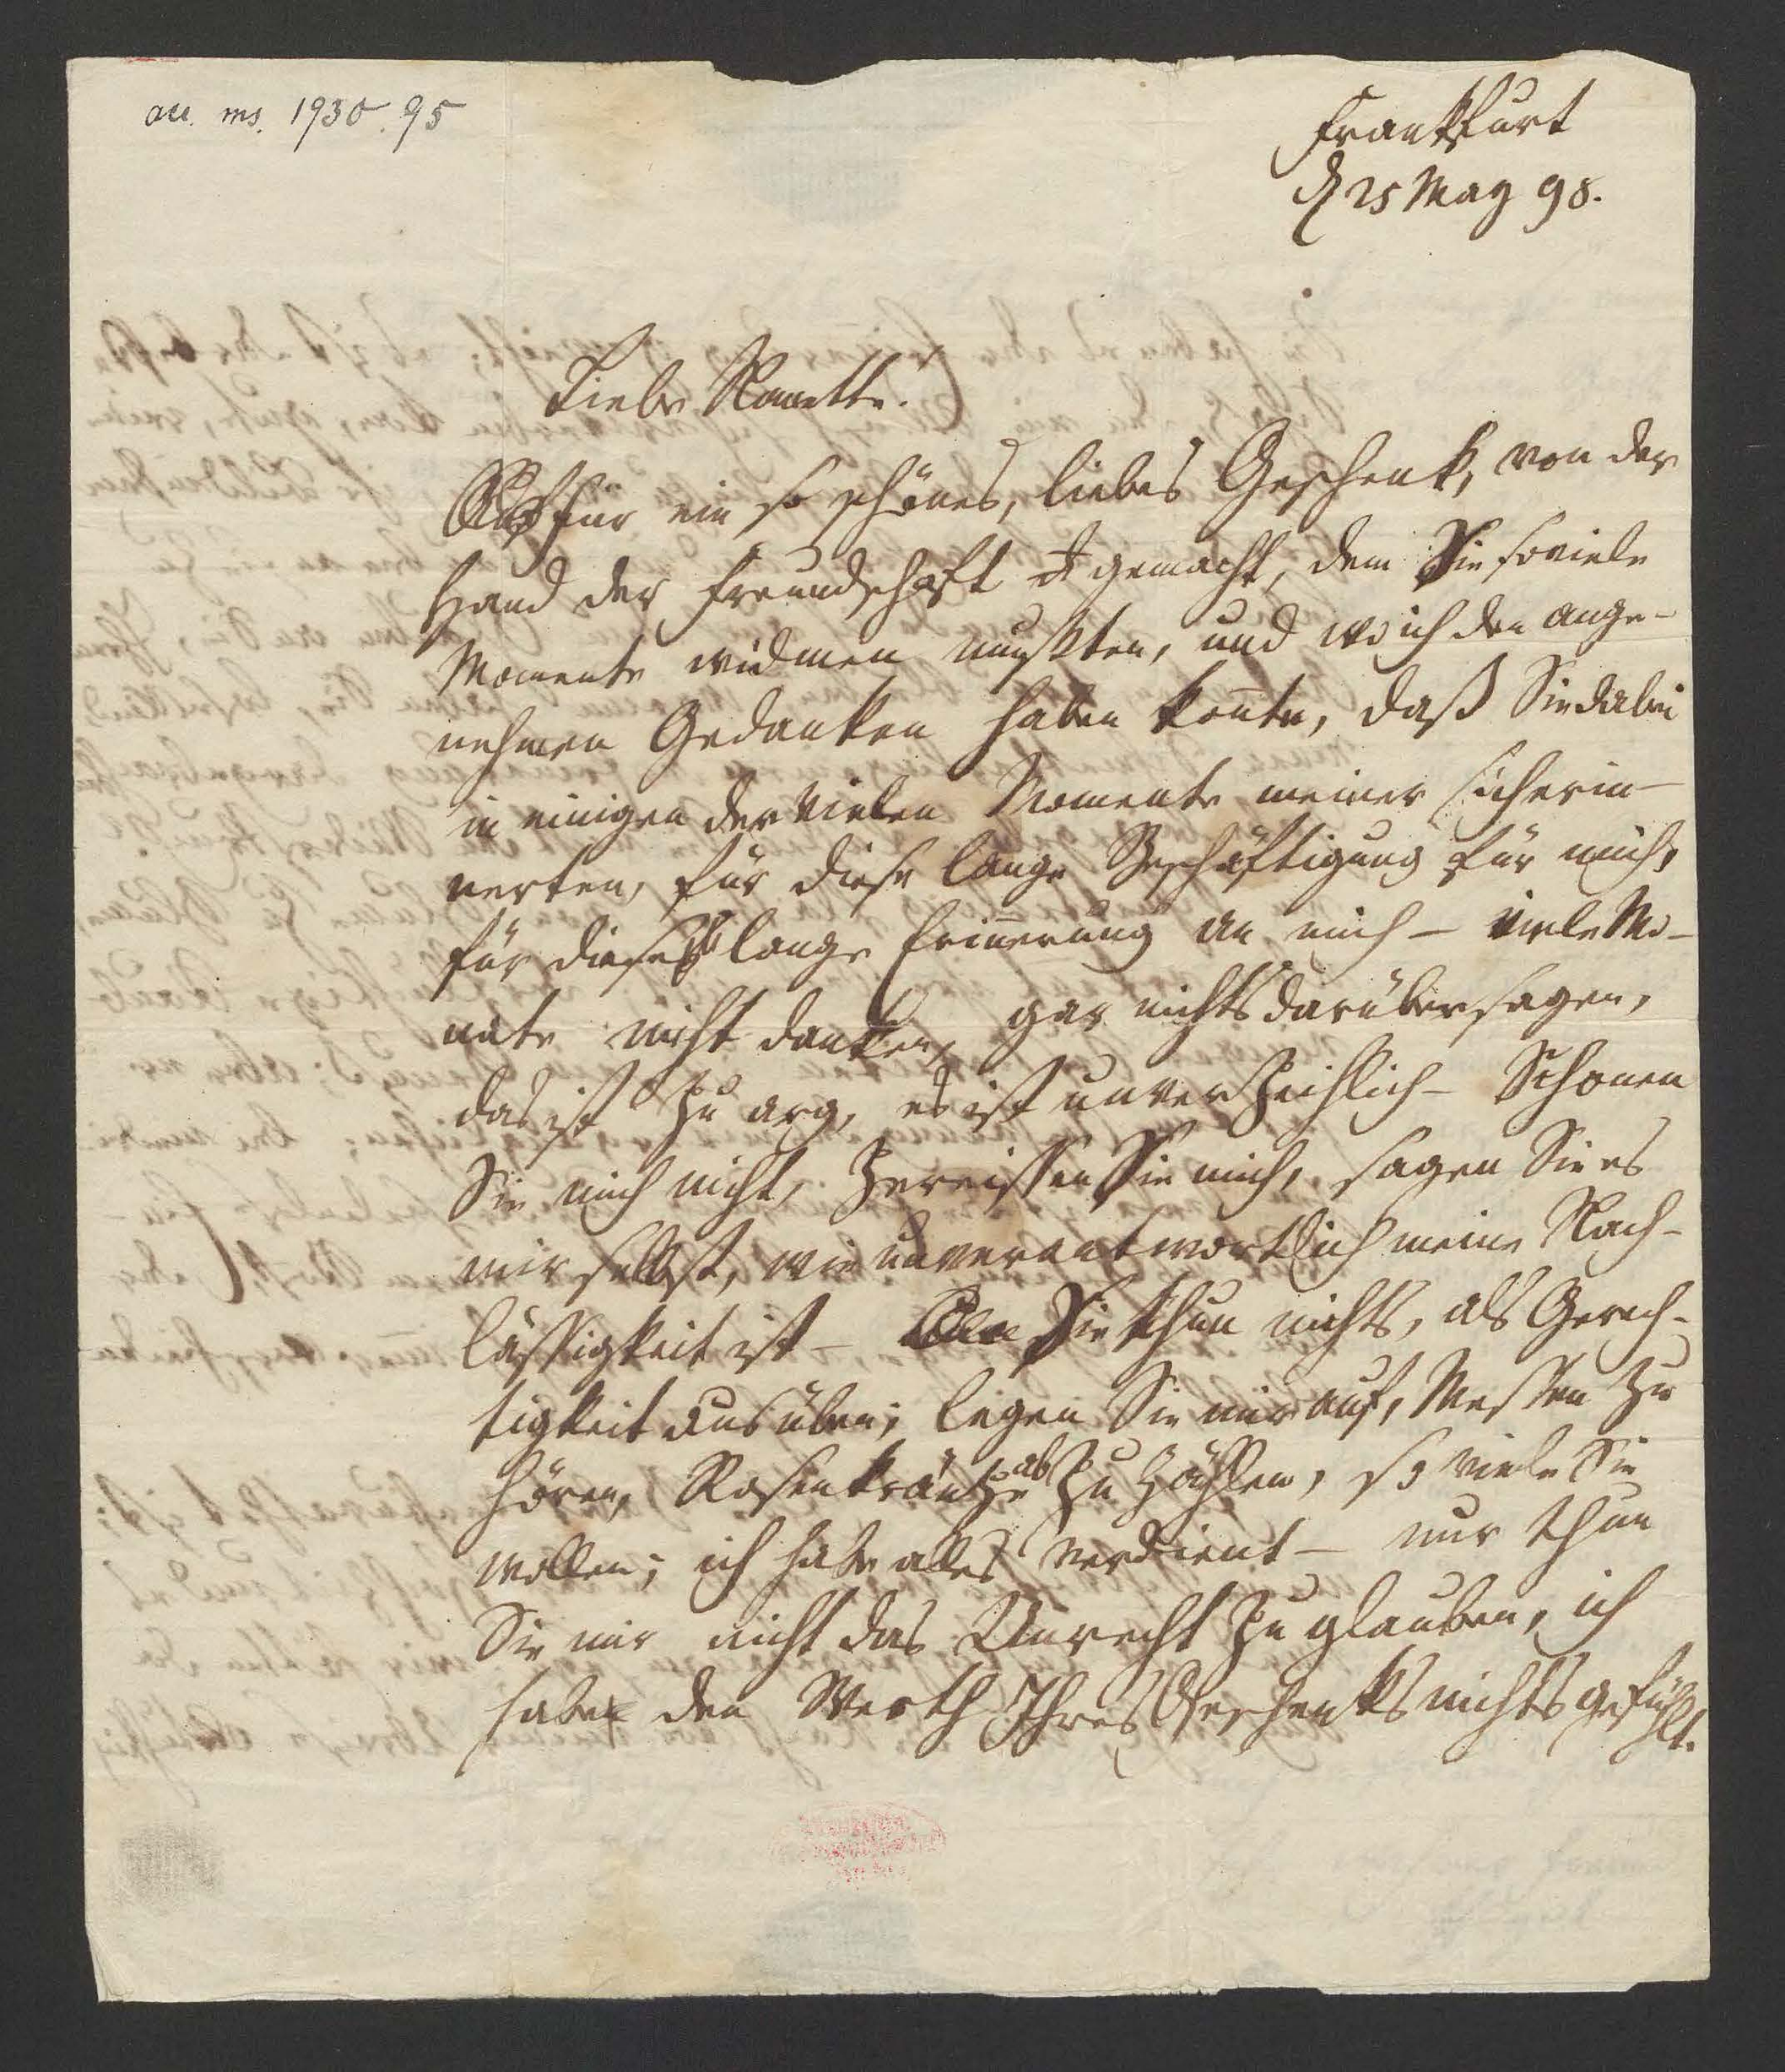 acc. ms. 1930. 95
Frankfurt
d 25 May 98.
Liebe Nanette!
für ein so schönes, liebes Geschenk, von der
Hand der Freundschaft gemacht, dem Sie soviele
Momente widmen mußten, und wo ich den ange-
nehmen Gedanken haben konnte, daß Sie dabei
in einigen der vielen Momente meiner sich erin-
nerten, für diese lange Beschäftigung für mich,
für diese lange Erinnerung an mich – viele Mo-
nate nicht danken, gar nichts darüber sagen,
das ist zu arg, es ist unverzeihlich – Schonen
Sie mich nicht, zereissen Sie mich, sagen Sie es
mir selbst, wie unverantwortlich meine Nach-
lässigkeit ist – Sie thun nichts, als Gerech-
tigkeit ausüben; legen Sie mir auf, Messen zu
hören, Rosenkränze ab zu zählen, so viele Sie
wollen; ich habe alles verdient – nur thun
Sie mir nicht das Unrecht zu glauben, ich
habe den Werth Ihres Geschenks nicht gefühlt.